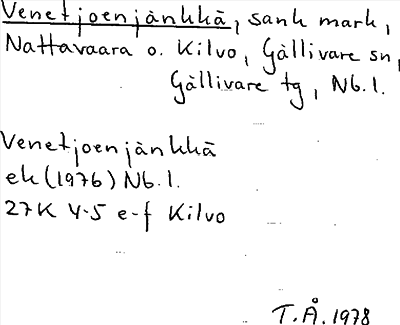 Venetjoenjänkkä, sank mark,
Nattavaara o. Kilvo, Gällivare sn,
Gällivare tg, Nb.l.
Venetjoenjänkkä
ek (1976) Nb.l.
27K 4-5 e-f Kilvo
T.Å. 1978